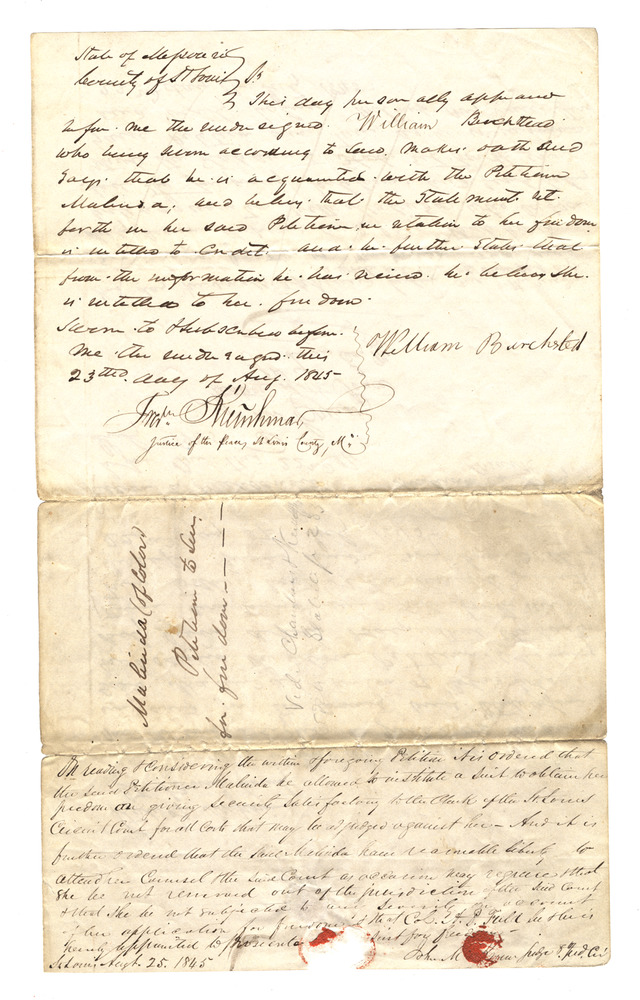 State of Missouri
County of St Louis Ss
This day personally appeared
before me the undersigned William Burchsted
who being sworn according to Law makes oath and
Says that he is acquainted with the Petitioner
Malinda, and believes that the Statement set
forth in her said Petition in relation to her freedom
is intitled to Credit and he further States that
from the information he has he believes she
is intitled to her freedom.
Sworn to & subscribed before
me the undersigned this
23rd day of Aug. 1845
William Burchsted
Justice of the Peace, St Louis County, Mo
Malinda (of Color)
Petition to sue
for freedom - - - -
On reading & considering the within & foregoing Petition it is ordered that
the said Petitioner Malinda be allowed to institute a Suit to obtain her
freedom on giving security satisfactory to the Clerk of the St Louis
Circuit Court for all Costs that may be adjudged against her - And it is
further ordered that the said Malinda have reasonable liberty to
attend her Counsel & the said Court as occasion may require & that
she be not removed out of the jurisdiction of the said Court
& that she be not subjected to any severity on account
of her application for freedom & that C. D. & A. P. Field
hereby appointed to prosecute suit for freedom -
St Louis, Augt. 25. 1845
John M. Judge 8th Jud. Cir